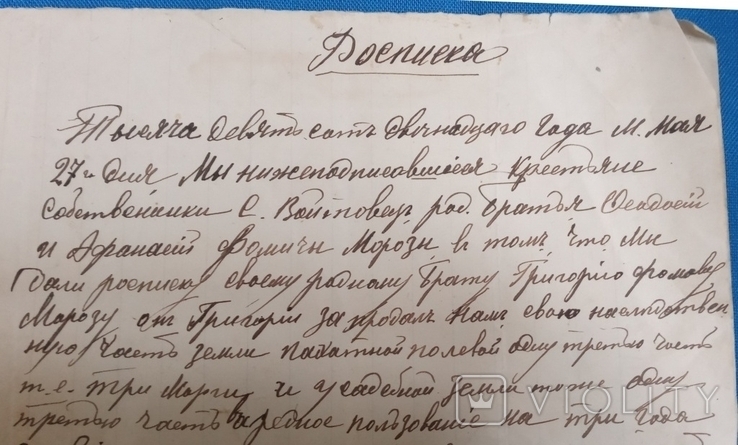 Росписка
Тысяча девятьсотъ двѣнадцаго года М. Мая
27го дня Мы нижеподписавшіеся крестьяне
собственники С. Войтовецъ, род. Братья
и Афанасій Фомичи Морозы в томъ что Мы
дали росписку своему родному Брату Григорію Фомову
Морозу от Григорій запродалъ намъ свою наслѣдствен-
ную часть земли пахатной полевой одну третью часть
т.е. три Морги и усадебной земли тоже одну
третью часть пользование на три года
VIOLITY